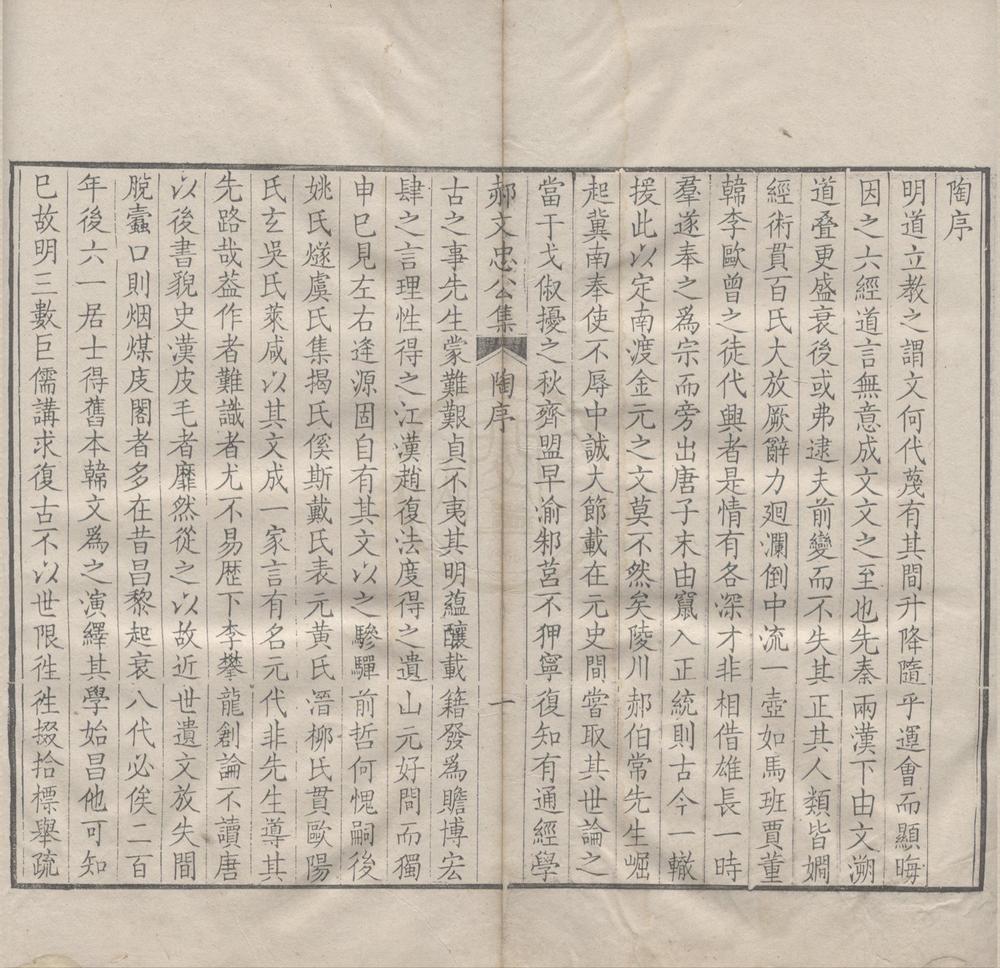 陶序
明道立教之謂文何代蔑有其間升降隨乎運會而顯晦
因之六經道言無意成文文之至也先秦兩漢下由文溯
道叠更盛衰後或弗逮夫前變而不失其正其人類皆嫺
經術貫百氏大放厥辭力廻瀾倒中流一壺如馬班賈董
韓李歐曾之徒代興者是情有各深才非相借雄長一時
羣遂奉之爲宗而旁出唐子末由竄入正統則古今一轍
援此以定南渡金元之文莫不然矣陵川郝伯常先生崛
起冀南奉使不辱中誠大節載在元史間嘗取其世論之
當干戈俶擾之秋齊盟早渝邾莒不狎寧復知有通經學
郝文忠公集
陶序
一
古之事先生蒙難艱貞不夷其明蘊釀載籍發爲贍博宏
肆之言理性得之江漢趙復法度得之遺山元好問而獨
申巳見左右逢源固自有其文以之驂驒前哲何愧嗣後
姚氏燧虞氏集揭氏傒斯戴氏表元黃氏溍柳氏貫歐陽
氏玄吳氏萊咸以其文成一家言有名元代非先生導其
先路哉葢作者難識者尤不易歷下李攀龍創論不讀唐
以後書貌史漢皮毛者靡然從之以故近世遺文放失間
脫蠹口則烟煤庋閣者多在昔昌黎起衰八代必俟二百
年後六一居士得舊本韓文爲之演繹其學始昌他可知
巳故明三數巨儒講求復古不以世限徃徃掇拾標舉疏